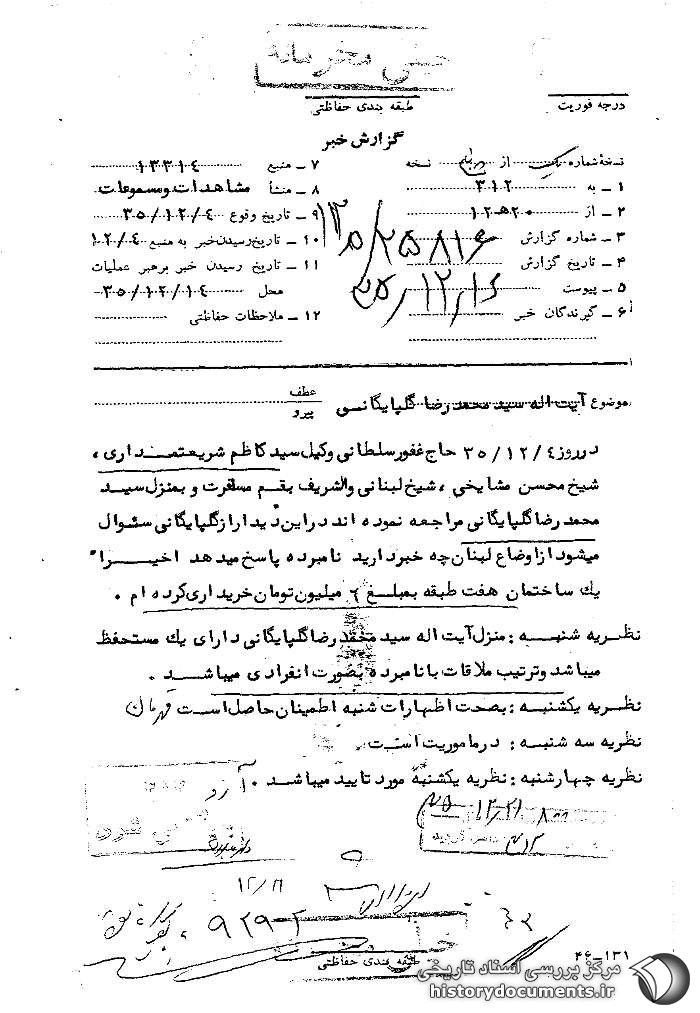 خیلی محرمانه
طبقه بندی حفاظتی
درجه فوریت
گزارش خبر
نسخهٔ شماره یک از نسخه
۱ ـ به ۳۱۲
۲ ـ از ۲۰ه۱۲
۳ ـ شماره گزارش ۲۵۸۱۶/۲۰ه۱۲
۴ ـ تاریخ گزارش ۳۵/۱۲/۱۶
۵ ـ پیوست
۶ ـ گیرندگان خبر
۷ ـ منبع ۱۳۳۱٤
۸ ـ منشأ مشاهدات ومسموعات
۹ ـ تاریخ وقوع ۳۵/۱۲/٤
۱۰ ـ تاریخ رسیدن خبر به منبع ۱۲/٤
۱۱ ـ تاریخ رسیدن خبر برهبر عملیات
محل ۳۵/۱۲/۱٤
۱۲ ـ ملاحظات حفاظتی
موضوع آیت اله سید محمد رضا گلپایگانی
عطف
پیرو
درروز ۳۵/۱۲/٤ حاج غفور سلطانی وکیل سید کاظم شریعتمداری ،
شیخ محسن مشایخی ، شیخ لبنانی والشریف بقم مسافرت و بمنزل سید
محمد رضا گلپایگانی مراجعه نموده اند دراین دیدار از گلپایگانی سئوال
میشود ازاوضاع لبنان چه خبردارید نامبرده پاسخ میدهد اخیراً
یك ساختمان هفت طبقه بمبلغ ٦ میلیون تومان خریداری کرده ام .
نظریه شنبه : منزل آیت اله سید محمد رضا گلپایگانی دارای یك مستحفظ
میباشد وترتیب ملاقات با نامبرده بصورت انفرادی میباشد .
نظریه یکشنبه : بصحت اظهارات شنبه اطمینان حاصل است قهرمان
نظریه سه شنبه : درماموریت است
نظریه چهارشنبه : نظریه یکشنبه مورد تایید میباشد . آرزو
۱۲/۲۱
۹۲۹۰۲
طبقه بندی حفاظتی
۴۶-۱۳۱
مرکز بررسی اسناد تاریخی
historydocuments.ir